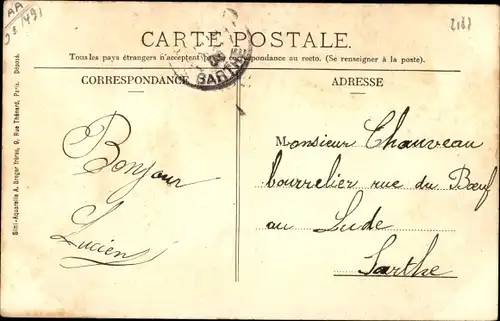 CARTE POSTALE.
Tous les pays étrangers n'acceptent pas la correspondance au recto. (Se renseigner à la poste).
CORRESPONDANCE
ADRESSE
Bonjour
Lucien
Monsieur Chauveau
bourrelier rue du Bœuf
au Lude
Sarthe
SARTHE
Simi-Aquarelle A. Breger frères, 9, Rue Thénard, Paris. Déposé.
AA
2187